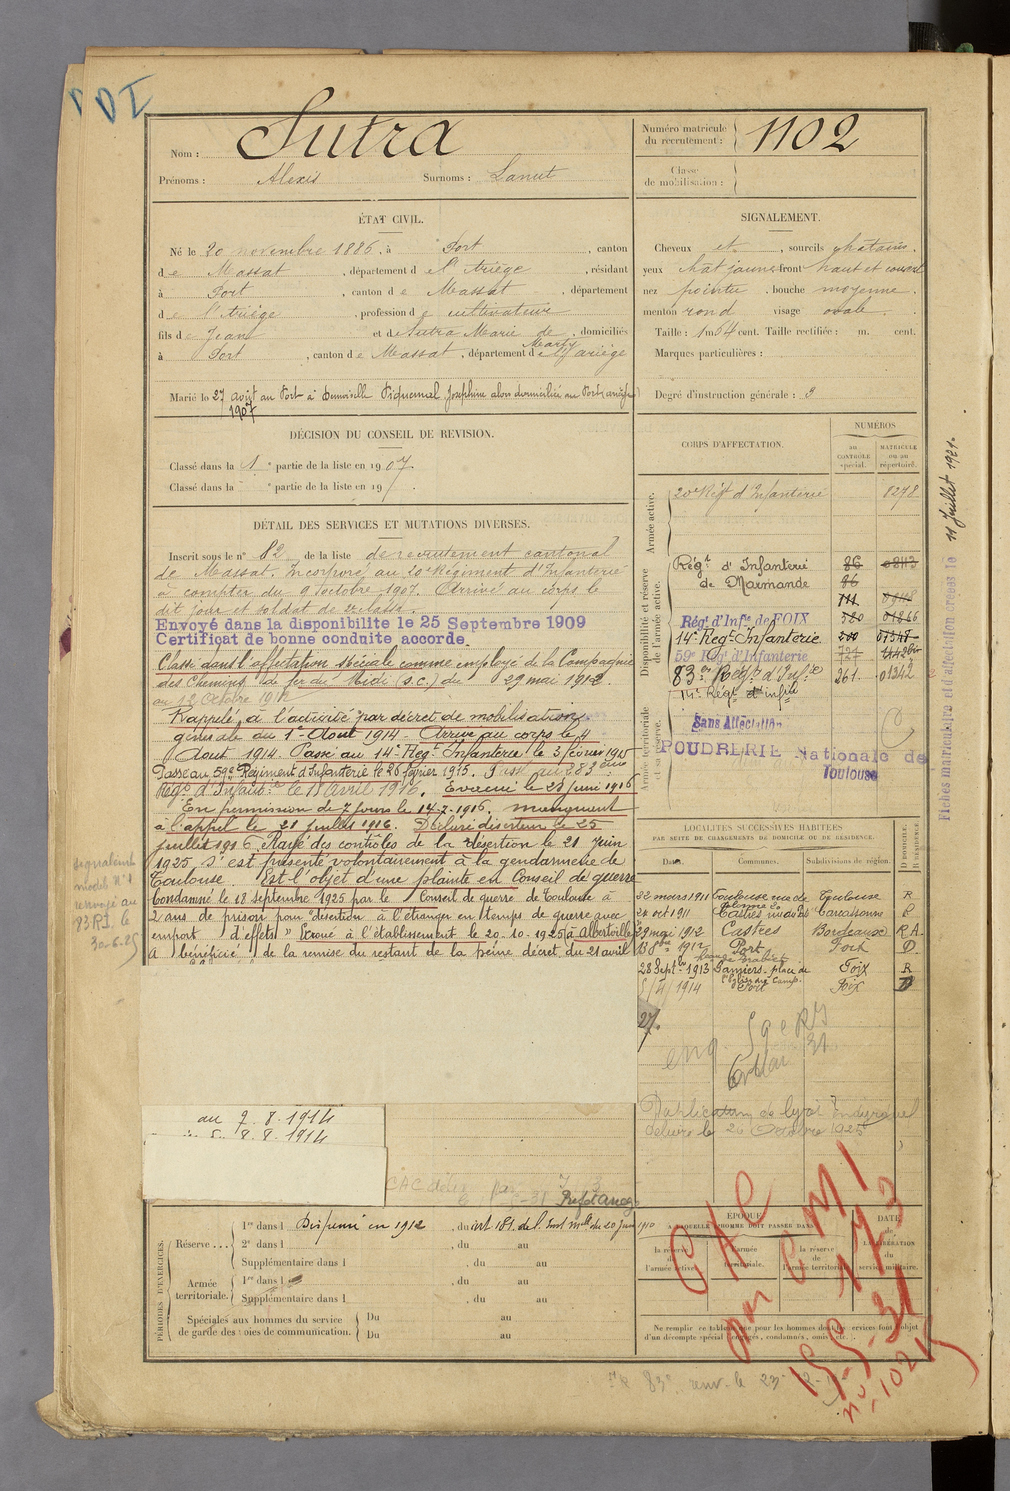 DDI
Nom : Sutra
Prénoms : Alexis Surnoms : Lanut
Numéro matricule du recrutement : 1102
Classe de mobilisation :
ÉTAT CIVIL.
Né le 20 novembre 1886, à Port, canton
de Massat, département de l'Ariège, résidant
à Port, canton de Massat, département
de l'Ariège, profession de cultivateur
fils de Jean et de Sutra Marie de Marty, domiciliés
à Port, canton de Massat, département de l'Ariège
Marié le 27 avril 1907 au Port à Demoiselle Piquemal Joséphine alors domiciliée au Port (ariège)
SIGNALEMENT.
Cheveux et, sourcils châtains,
yeux chât jaunes front haut et couvert
nez pointu, bouche moyenne,
menton rond visage ovale.
Taille : 1m 64 cent. Taille rectifiée : m. cent.
Marques particulières :
Degré d'instruction générale : 3
DÉCISION DU CONSEIL DE REVISION.
Classé dans la 1e partie de la liste en 1907.
Classé dans la e partie de la liste en 19 .
DÉTAIL DES SERVICES ET MUTATIONS DIVERSES.
Inscrit sous le n° 82 de la liste de recrutement cantonal
de Massat. Incorporé au 20e Régiment d'Infanterie
à compter du 9 octobre 1907. Arrivé au corps le
dit jour et soldat de 2e classe.
Envoyé dans la disponibilité le 25 Septembre 1909
Certificat de bonne conduite accordé
Classé dans l'affectation spéciale comme employé de la Compagnie
des Chemins de fer du Midi (s.c.) du 29 mai 1912
au 12 Octobre 1912
Rappelé à l'activité par décret de mobilisation
générale du 1er Août 1914. Arrivé au corps le 4
Août 1914. Passé au 14e Rég. Infanterie le 3 février 1915
Passé au 59e Régiment d'Infanterie le 26 février 1915. Passé au 283ème
Régt d'Infanterie le 18 avril 1916. Evacué le 23 juin 1916
En permission de 7 jours le 14-7-1916. manquant
à l'appel le 21 juillet 1916. Déclaré déserteur le 25
juillet 1916. Rayé des contrôles de la désertion le 21 juin
1925. S'est présenté volontairement à la gendarmerie de
Toulouse. Est l'objet d'une plainte en Conseil de guerre
Condamné le 18 septembre 1925 par le Conseil de guerre de Toulouse à
2 ans de prison pour "désertion à l'étranger en temps de guerre avec
emport d'effets" Ecroué à l'établissement le 20-10-1925 à Albertville
A bénéficié de la remise du restant de la peine décret du 21 avril
27.
signalement
modèle n° 1
renvoyé au
83 RI le
30.6.25
au 7-8-1914
8-8-1914
CORPS D'AFFECTATION.
NUMÉROS
au CONTRÔLE spécial.
MATRICULE ou au répertoire.
Armée active.
20e Régt d'Infanterie 8278
Disponibilité et réserve de l'armée active.
Régt d'Infanterie 86
de Marmande 86
111
Régt d'Infie de FOIX 01866
14e Régt Infanterie
59e Régt d'Infanterie 727
83e Régt d'Infie 261 01342
14e Régt d'infie
Armée territoriale et sa réserve.
Sans Affectation
POUDRERIE Nationale de
Toulouse
Fiches matriculaire et d'affectation créées le 11 Juillet 1921.
LOCALITÉS SUCCESSIVES HABITÉES
PAR SUITE DE CHANGEMENTS DE DOMICILE OU DE RÉSIDENCE.
Dates. Communes. Subdivisions de région. D DOMICILE. R RÉSIDENCE.
22 mars 1911 Toulouse rue de Toulouse R
28 oct 1911 Castres Carcassonne R
29 mai 1912 Castres Bordeaux RA
13 8bre 1912 Port Foix D
28 Septbre 1913 Pamiers place de Foix R
1914 Port Foix D
Duplicatum de livret Individuel
délivré le 26 Octobre 1925
Préf d'Ariège
PÉRIODES D'EXERCICES.
Réserve...
1re dans l Dispensé en 1912, du art 181 de l'Inst Mlle du 20 juin 1910
2e dans l , du au
Supplémentaire dans l , du au
Armée territoriale.
1re dans l , du au
Supplémentaire dans l , du au
Spéciales aux hommes du service de garde des voies de communication.
Du au
Du au
ÉPOQUE
À LAQUELLE L'HOMME DOIT PASSER DANS
la réserve de l'armée active
l'armée territoriale.
la réserve de l'armée territoriale
DATE de LA LIBÉRATION du service militaire.
Ne remplir ce tableau que pour les hommes dont les services font l'objet
d'un décompte spécial (engagés, condamnés, omis, etc.).
CAC
par CMI
n° 10215